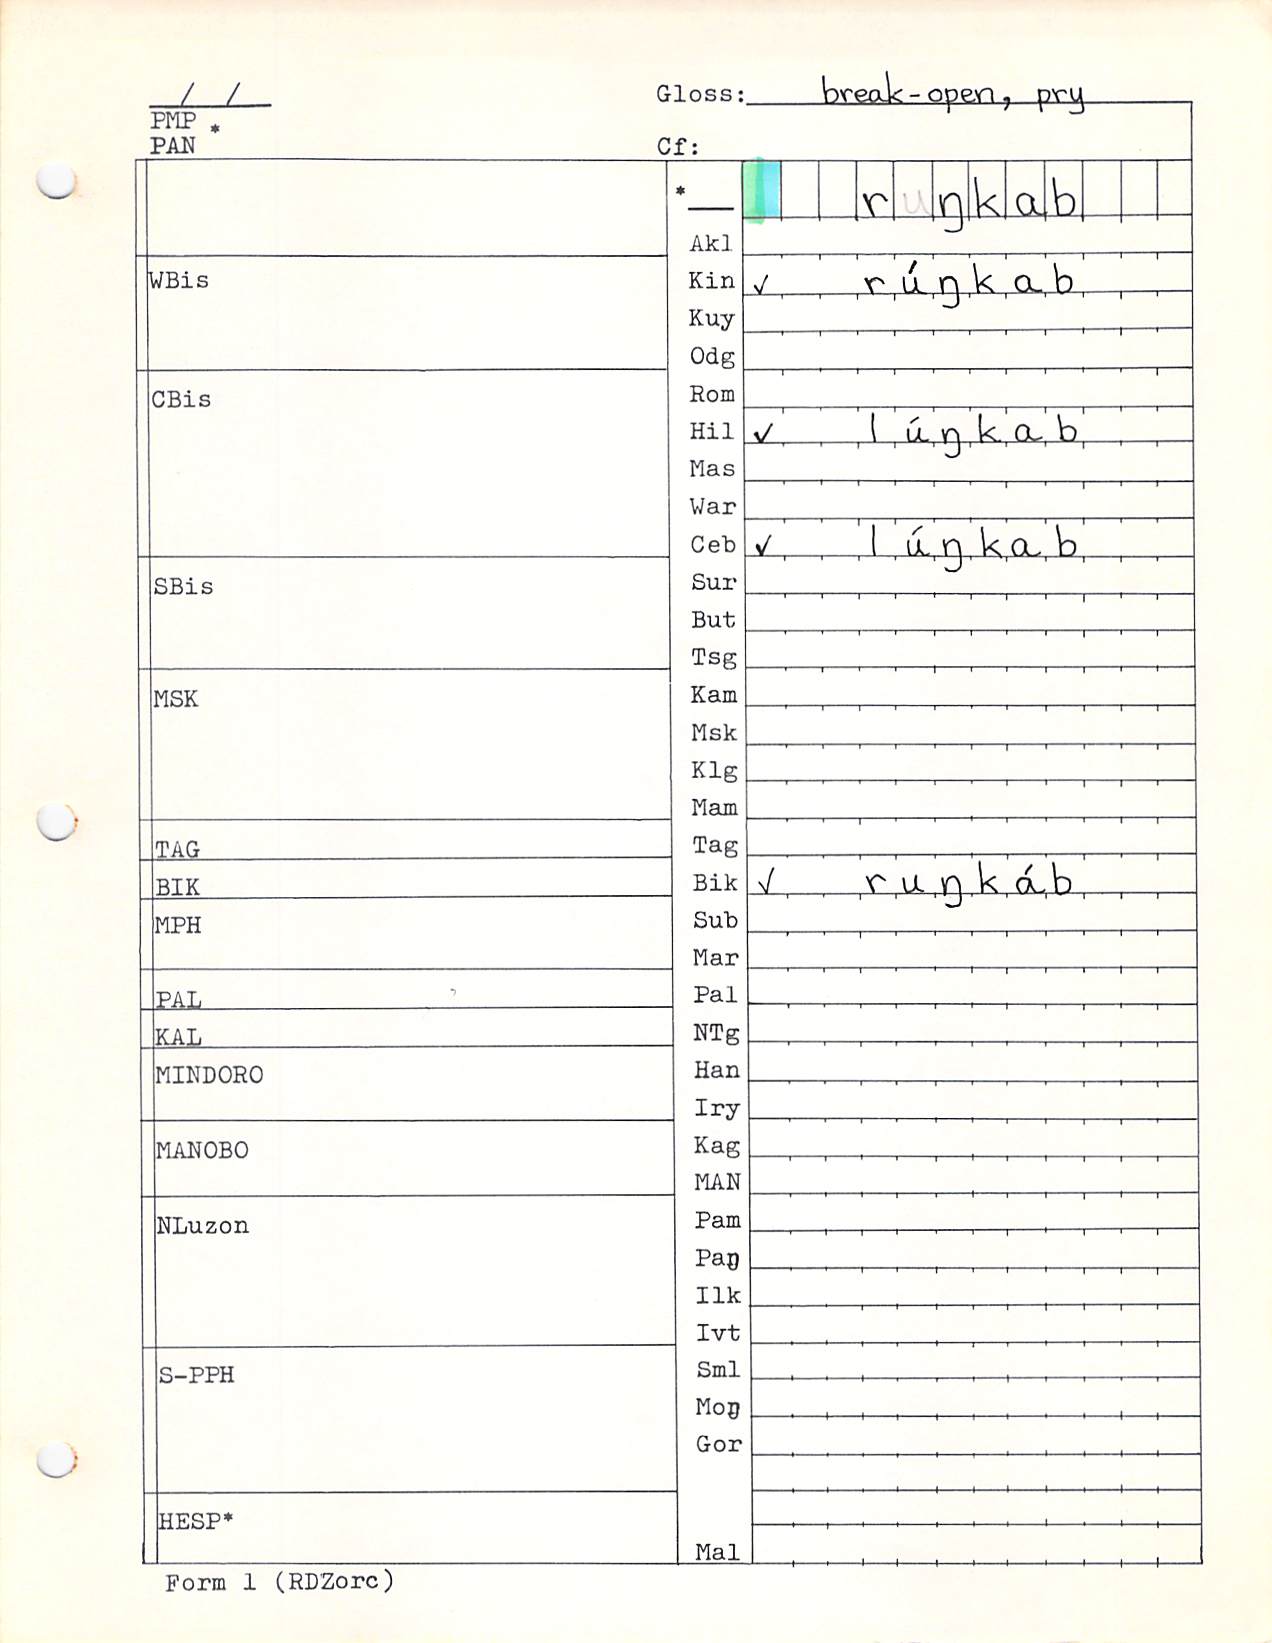 / /
Gloss: break-open, pry
PMP *
PAN
Cf:
* ruŋkab
Akl
WBis
Kin ✓ rúŋkab
Kuy
Odg
Rom
CBis
Hil ✓ lúŋkab
Mas
War
Ceb ✓ lúŋkab
SBis
Sur
But
Tsg
MSK
Kam
Msk
Klg
Mam
TAG
Tag
BIK
Bik ✓ ruŋkáb
MPH
Sub
Mar
PAL
Pal
KAL
NTg
MINDORO
Han
Iry
MANOBO
Kag
MAN
NLuzon
Pam
Paŋ
Ilk
Ivt
S-PPH
Sml
Moŋ
Gor
HESP*
Mal
Form 1 (RDZorc)